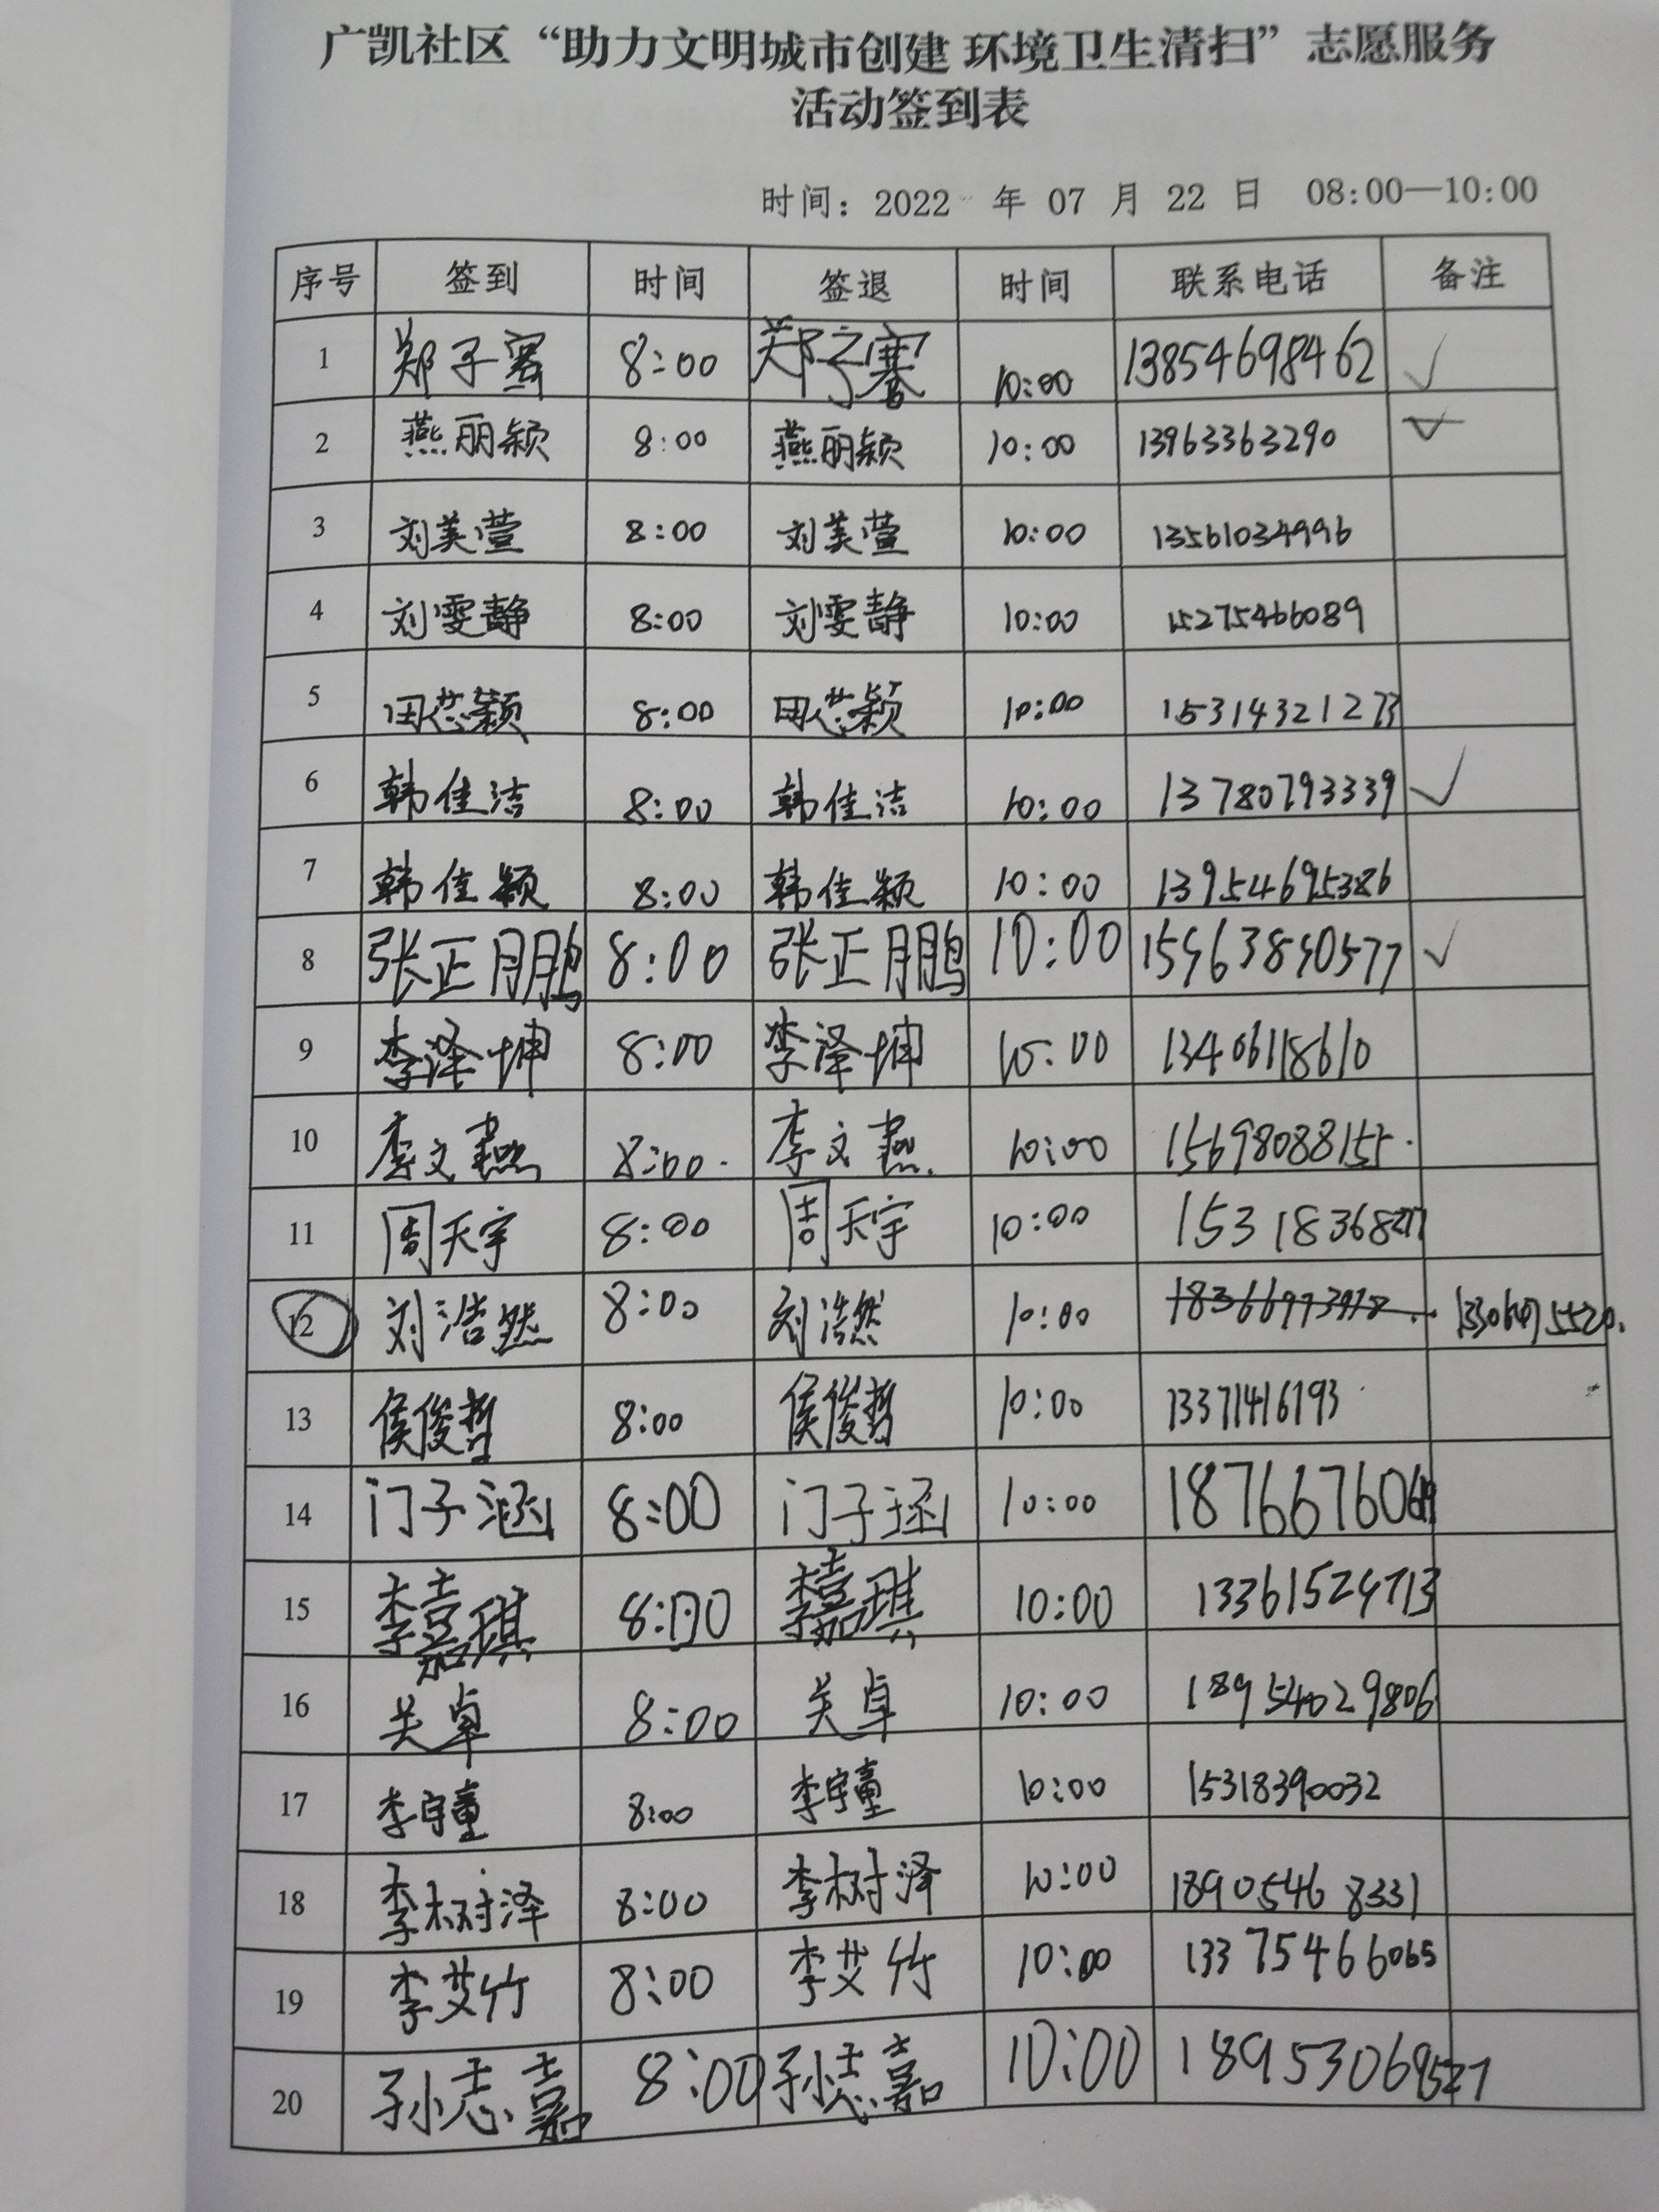 广凯社区“助力文明城市创建 环境卫生清扫”志愿服务
活动签到表
时间：2022 年 07 月 22 日 08:00—10:00
序号 签到 时间 签退 时间 联系电话 备注
1 郑子骞 8:00 郑子骞 10:00 13854698462 √
2 燕丽颖 8:00 燕丽颖 10:00 13963363290 √
3 刘美萱 8:00 刘美萱 10:00 13561034996
4 刘雯静 8:00 刘雯静 10:00 15275466089
5 田蕊颖 8:00 田蕊颖 10:00 15314321273
6 韩佳洁 8:00 韩佳洁 10:00 13780793339 √
7 韩佳颖 8:00 韩佳颖 10:00 13954695386
8 张正鹏 8:00 张正鹏 10:00 15963890577 √
9 李泽坤 8:00 李泽坤 10:00 13406118610
10 李文燕 8:00 李文燕 10:00 15698088155
11 周天宇 8:00 周天宇 10:00 15318368277
12 刘浩然 8:00 刘浩然 10:00
13 侯俊哲 8:00 侯俊哲 10:00 13371416193
14 门子涵 8:00 门子涵 10:00
15 李嘉琪 8:00 李嘉琪 10:00 13361524713
16 关卓 8:00 关卓 10:00 18954029806
17 李宇童 8:00 李宇童 10:00 15318390032
18 李树泽 8:00 李树泽 10:00 18905468331
19 李艾竹 8:00 李艾竹 10:00 13375466065
20 孙志嘉 8:00 孙志嘉 10:00 18953069527